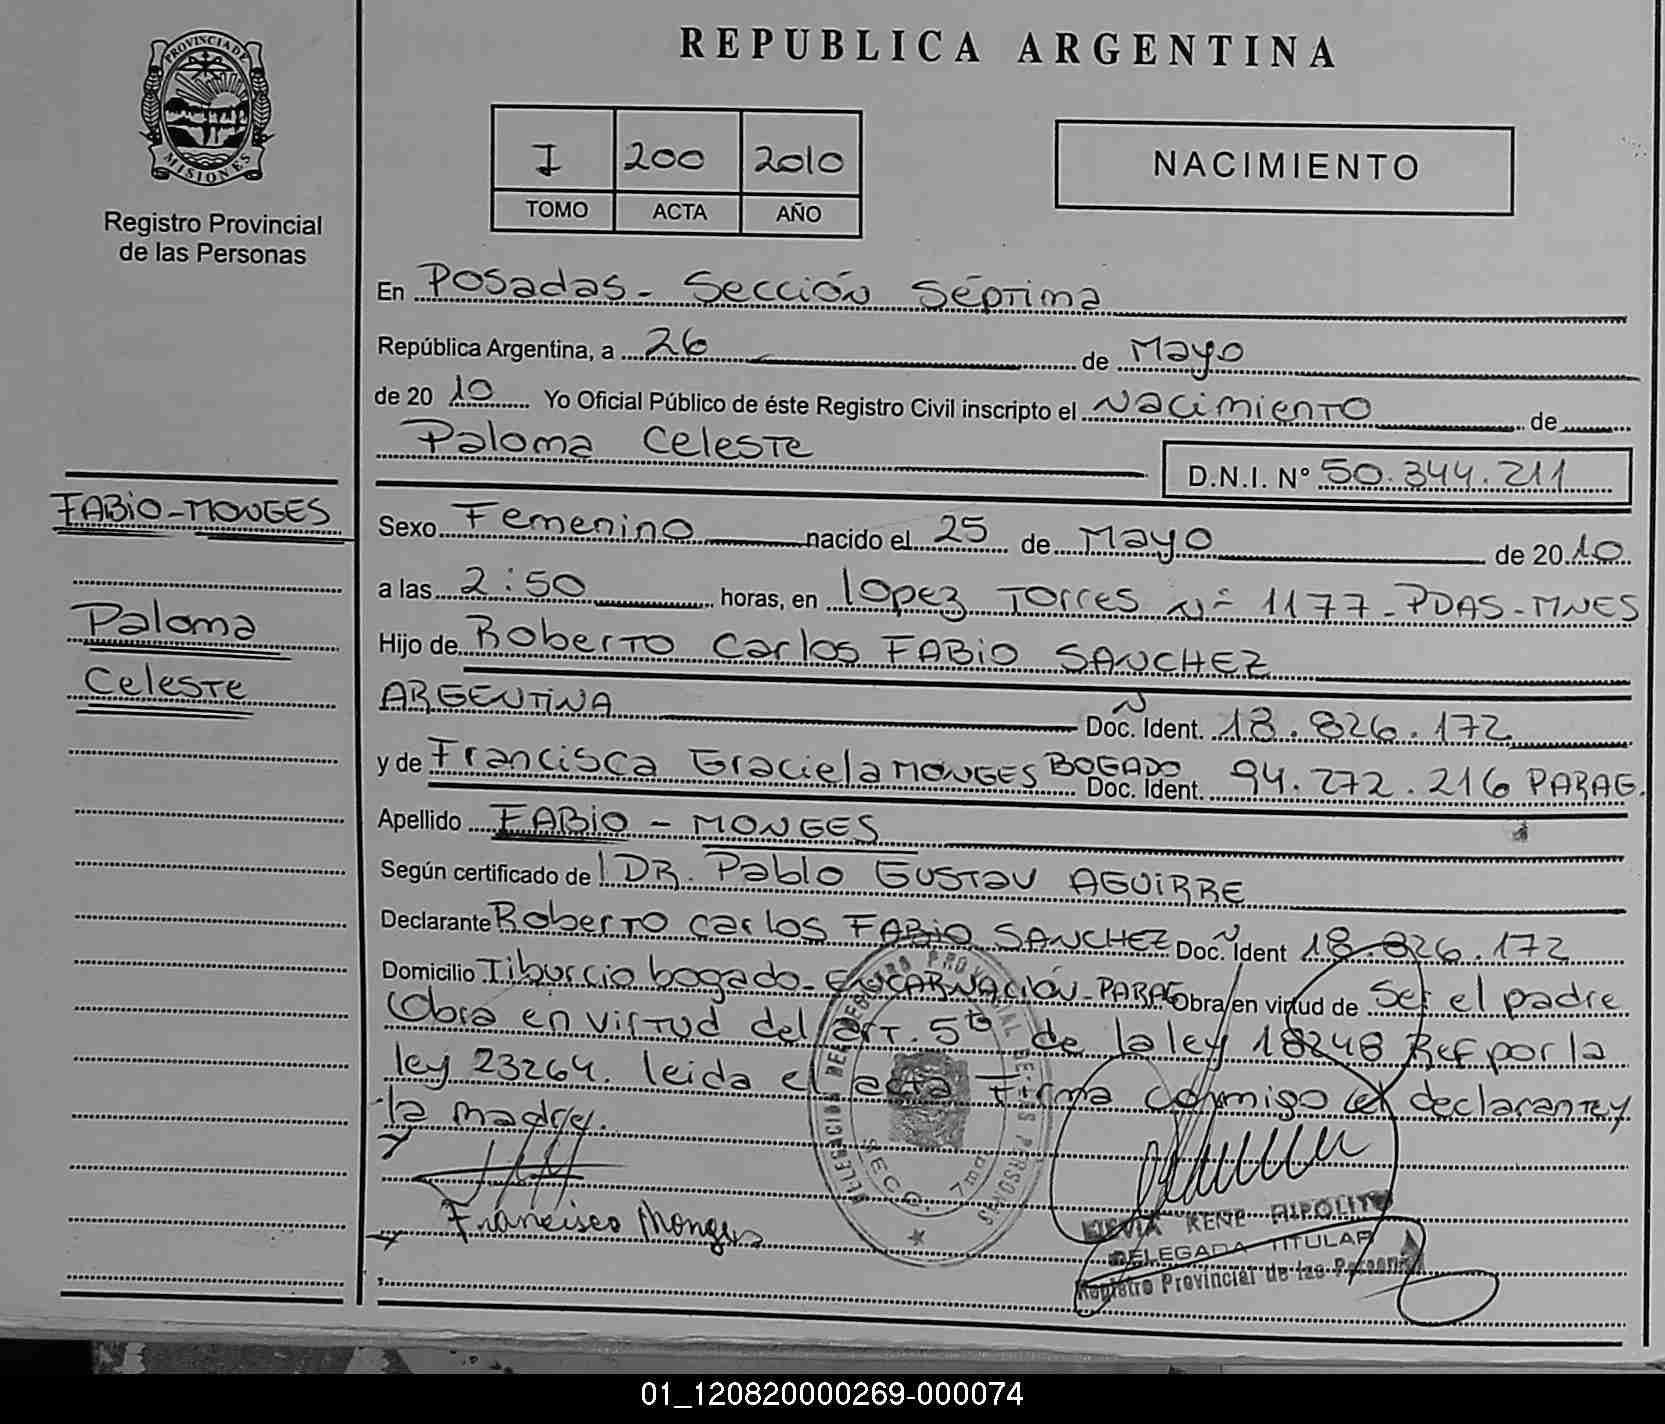 PROVINCIA DE
MISIONES
Registro Provincial
de las Personas
REPUBLICA ARGENTINA
I 200 2010
TOMO ACTA AÑO
NACIMIENTO
En Posadas - Sección Séptima
República Argentina, a 26 de Mayo
de 20 10 Yo Oficial Público de éste Registro Civil inscripto el Nacimiento de
Paloma Celeste
D.N.I. Nº 50.344.211
FABIO-MONGES
Paloma
Celeste
Sexo Femenino nacido el 25 de Mayo de 20 10
a las 2:50 horas, en Lopez Torres Nº 1177 - PDAS - MNES
Hijo de Roberto Carlos FABIO SANCHEZ
ARGENTINA Doc. Ident. 18.826.172
y de Francisca Graciela MONGES BOGADO Doc. Ident. 94.272.216 PARAG.
Apellido FABIO - MONGES
Según certificado de DR. Pablo Gustav AGUIRRE
Declarante Roberto Carlos FABIO SANCHEZ Doc. Ident 18.826.172
Domicilio Tiburcio bogado - ENCARNACIÓN - PARAG Obra en virtud de Ser el padre
Obra en virtud del art. 5to de la ley 18248 Ref por la
ley 23264. leida el acta Firma conmigo el declarante y
la madre.
Francisca Monges
DELEGACION DEL REGISTRO PROVINCIAL DE LAS PERSONAS
SECC. 7ma
RENE HIPOLITO
DELEGADA TITULAR
Registro Provincial de las Personas
01_120820000269-000074